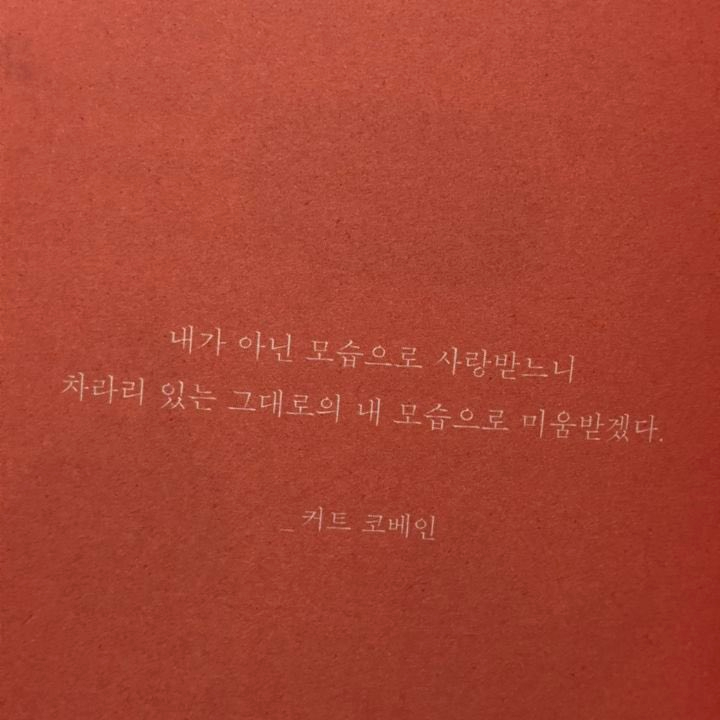 내가 아닌 모습으로 사랑받느니
차라리 있는 그대로의 내 모습으로 미움받겠다.
_ 커트 코베인